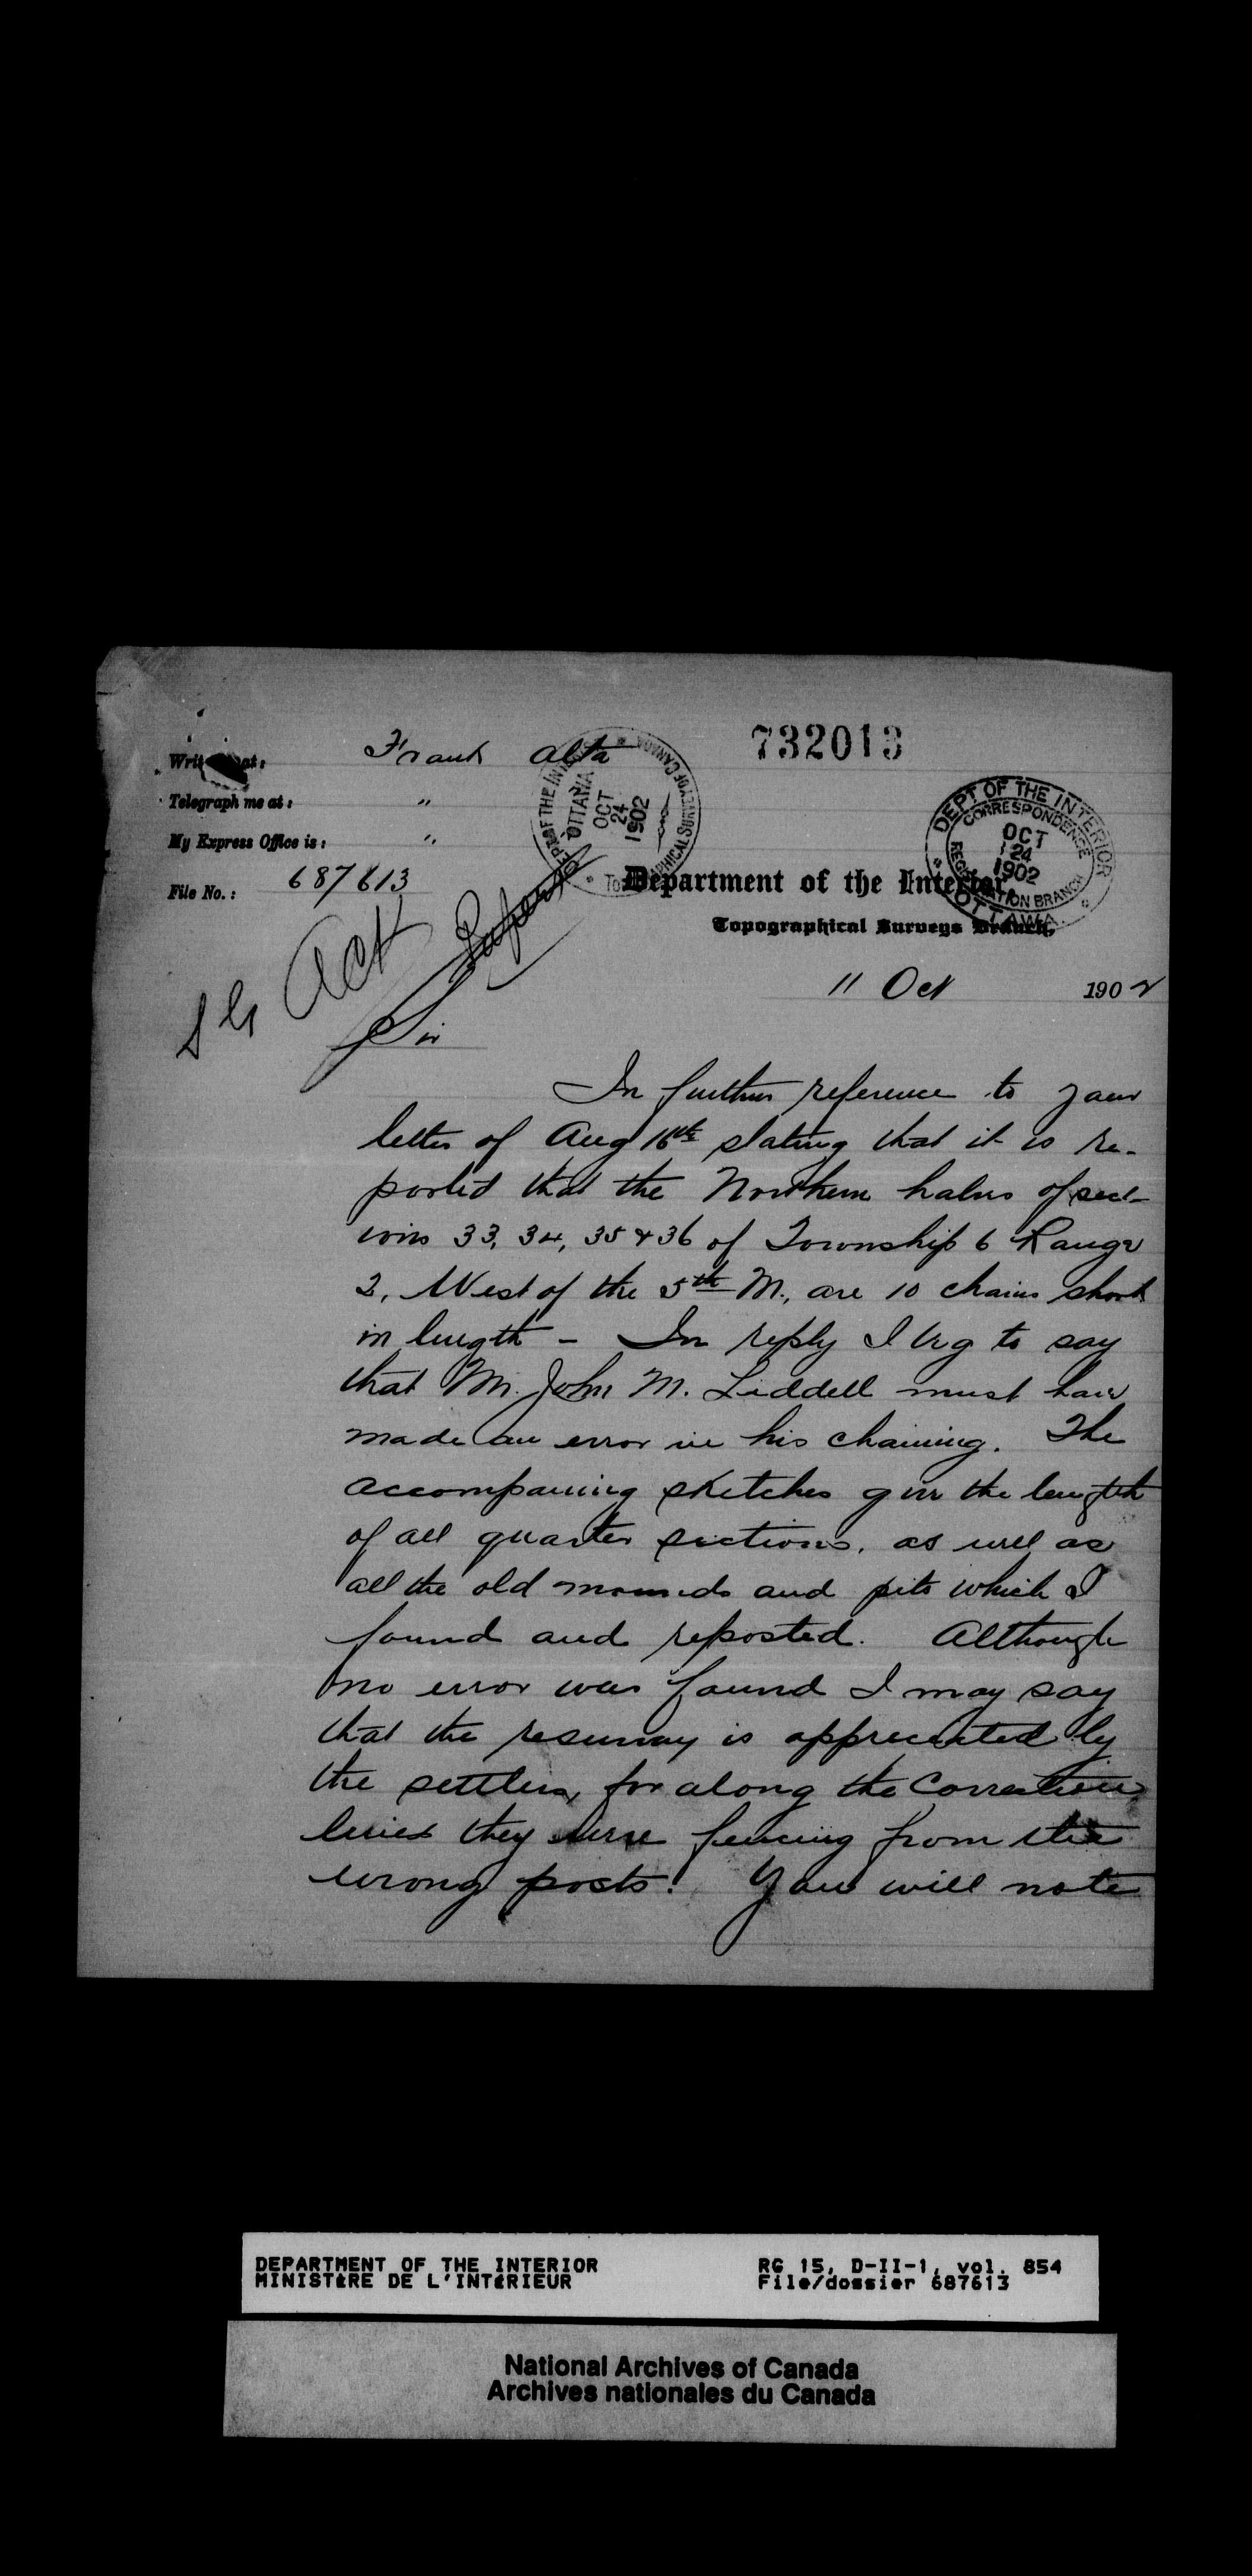 732013
Write me at: Frank Alta
Telegraph me at: "
My Express Office is: "
File No.: 687613
DEPT OF THE INTERIOR
OTTAWA
OCT
24
1902
TOPOGRAPHICAL SURVEY OF CANADA
DEPT OF THE INTERIOR
CORRESPONDENCE
OCT
24
1902
REGISTRATION BRANCH
OTTAWA
Department of the Interior,
Topographical Surveys Branch,
11 Oct 1902
Ack
Papers
Sir
In further reference to your
letter of Aug 16th stating that it is re-
ported that the Northern halves of sect-
ions 33, 34, 35 & 36 of Township 6 Range
2, West of the 5th M., are 10 chains short
in length - In reply I beg to say
that Mr. John M. Liddell must have
made an error in his chaining. The
accompaning sketches give the length
of all quarter sections, as well as
all the old mounds and pits which I
found and reposted. Although
no error was found I may say
that the resurvey is appreciated by
the settlers, for along the Correction
lines they were fencing from the
wrong posts. You will note
DEPARTMENT OF THE INTERIOR RG 15, D-II-1, vol. 854
MINISTÈRE DE L'INTÉRIEUR File/dossier 687613
National Archives of Canada
Archives nationales du Canada